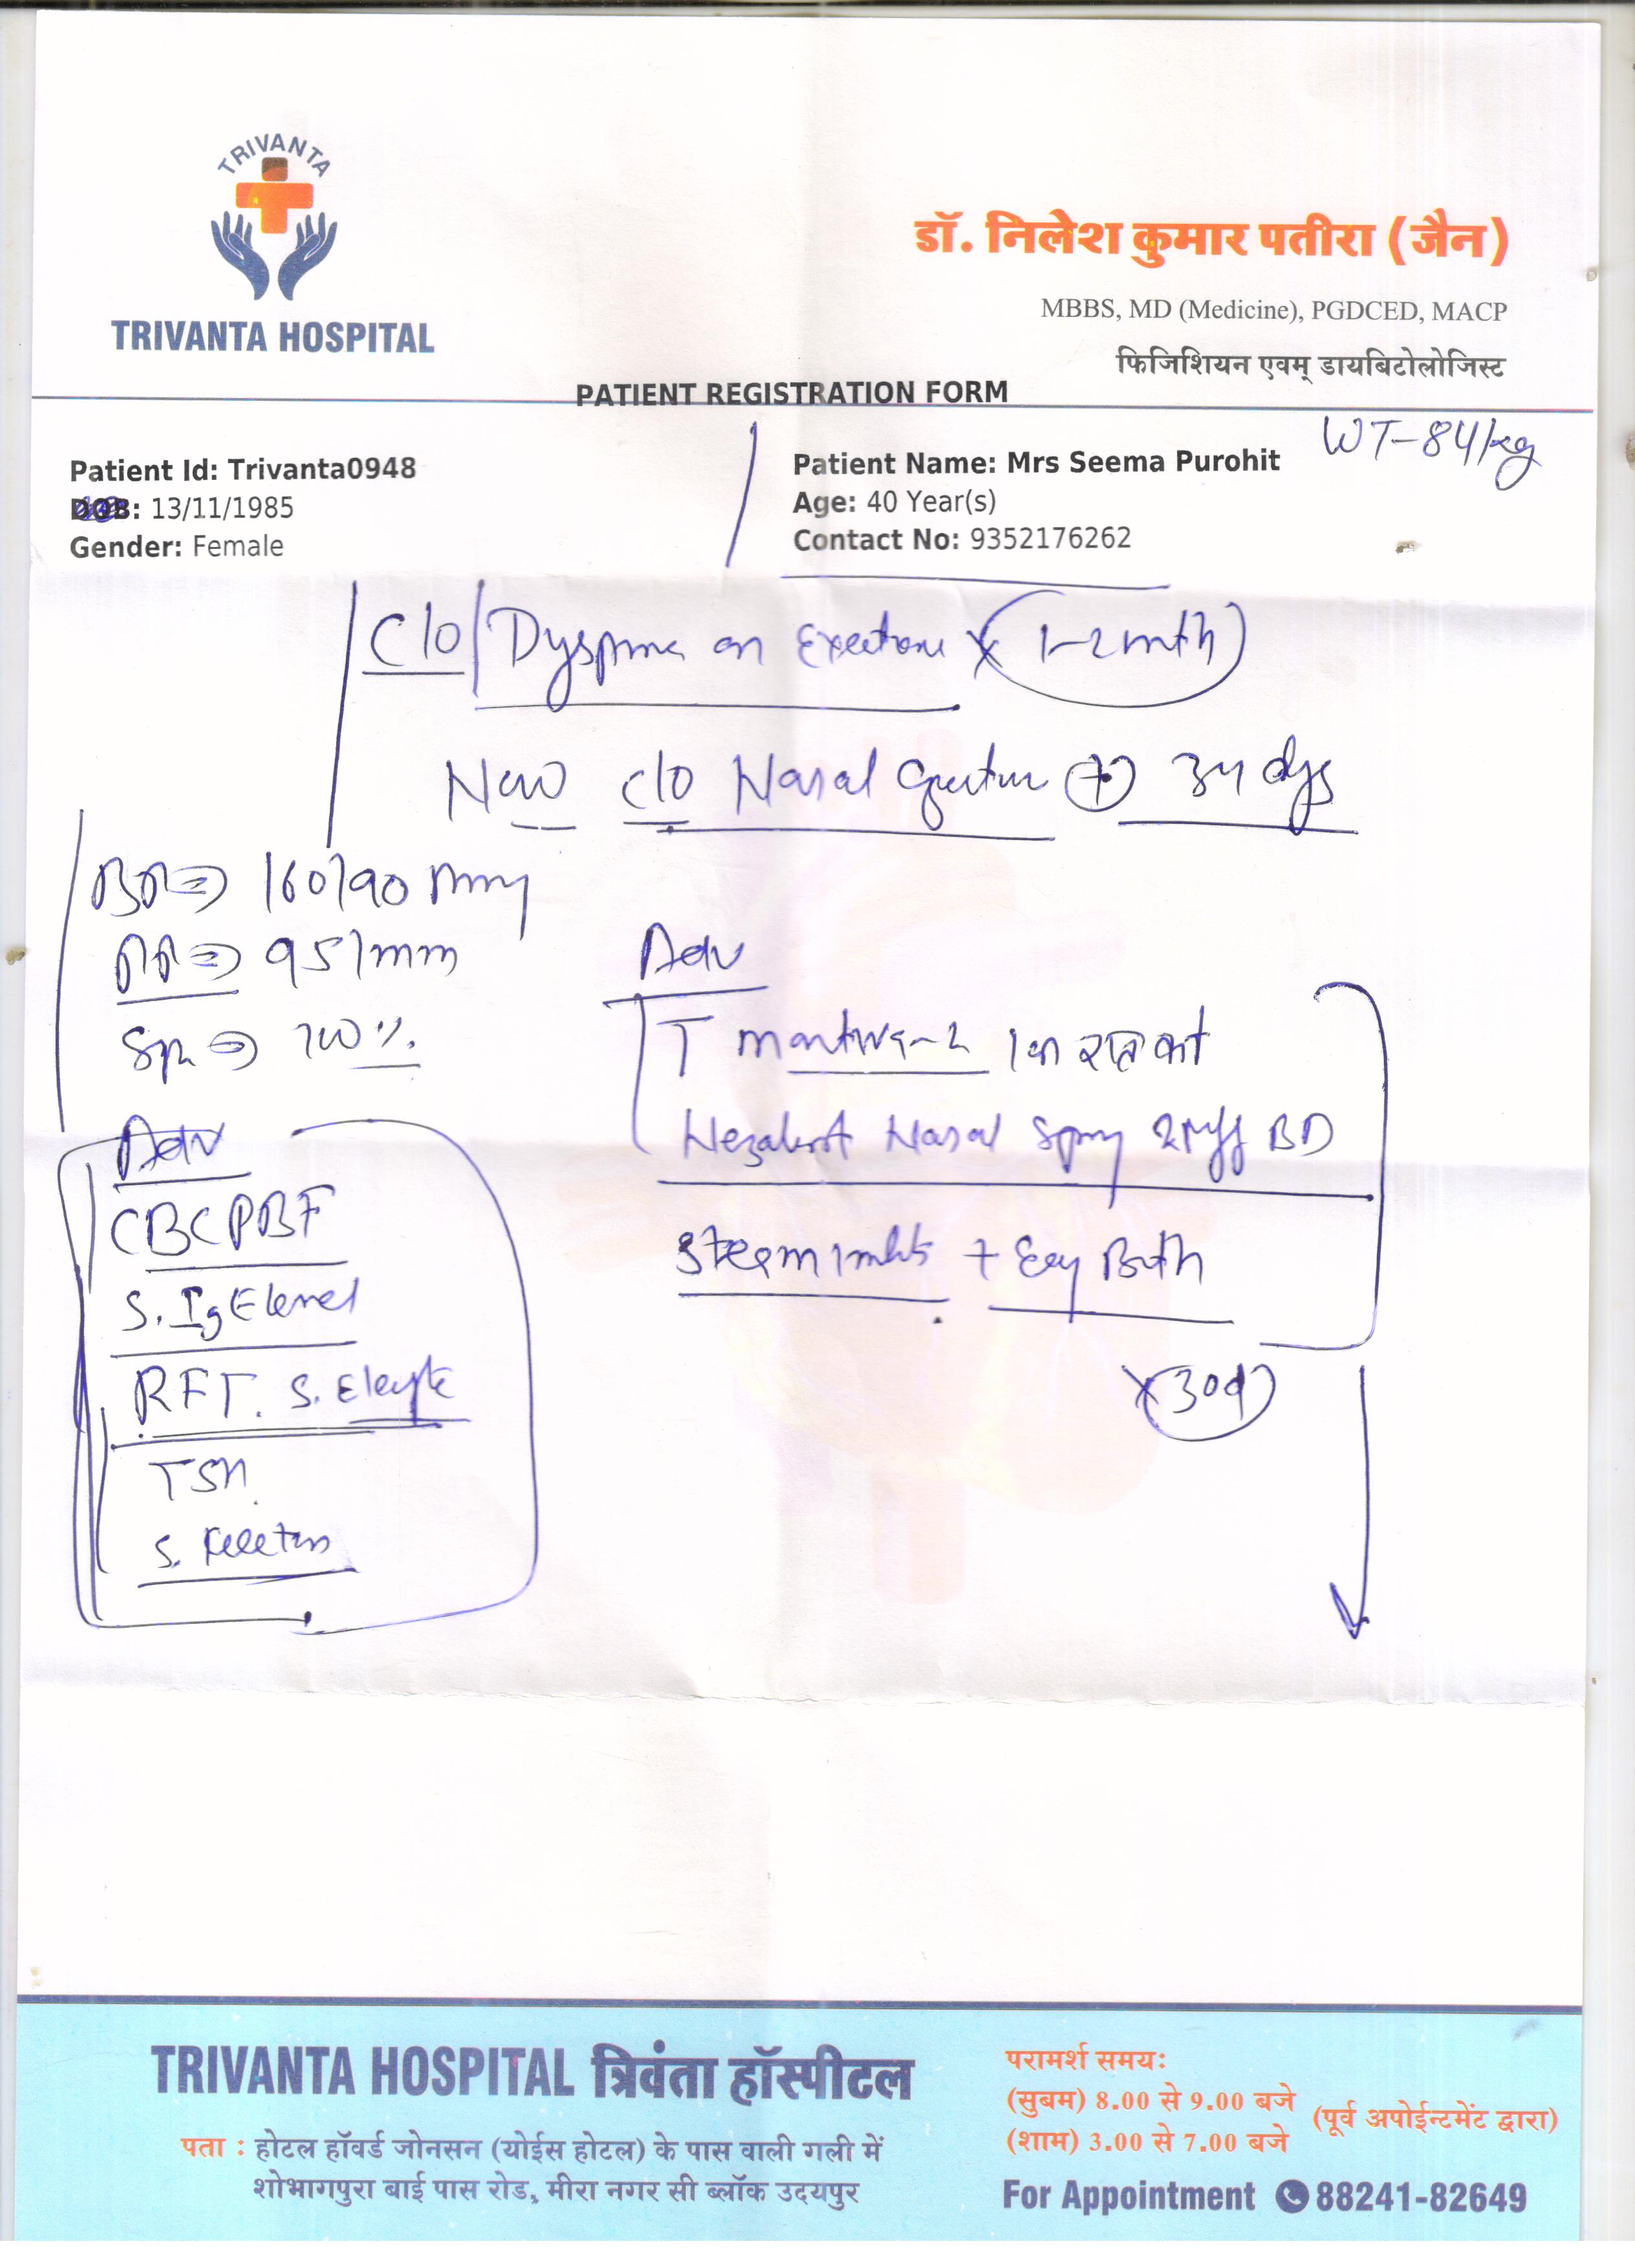 TRIVANTA
TRIVANTA HOSPITAL
डॉ. निलेश कुमार पतीरा (जैन)
MBBS, MD (Medicine), PGDCED, MACP
फिजिशियन एवम् डायबिटोलोजिस्ट
PATIENT REGISTRATION FORM
WT-84/kg
Patient Id: Trivanta0948
DOB: 13/11/1985
Gender: Female
Patient Name: Mrs Seema Purohit
Age: 40 Year(s)
Contact No: 9352176262
C/o Dyspnea on Exertion x 1-2 mth
Now c/o Nasal + 3-4 dys
BP ⇒ 160/90 mmg
PR ⇒ 95/min
100%
Adv
CBC PBF
S. IgE level
RFT. S. Elecyte
TSH
S.
Adv
T 2 रात को
Nasal Spray 2 puff BD
Steam +
x 30d
TRIVANTA HOSPITAL त्रिवंता हॉस्पीटल
पता : होटल हॉवर्ड जोनसन (योईस होटल) के पास वाली गली में
शोभागपुरा बाई पास रोड, मीरा नगर सी ब्लॉक उदयपुर
परामर्श समय:
(सुबम) 8.00 से 9.00 बजे
(शाम) 3.00 से 7.00 बजे
(पूर्व अपोईन्टमेंट द्वारा)
For Appointment 88241-82649